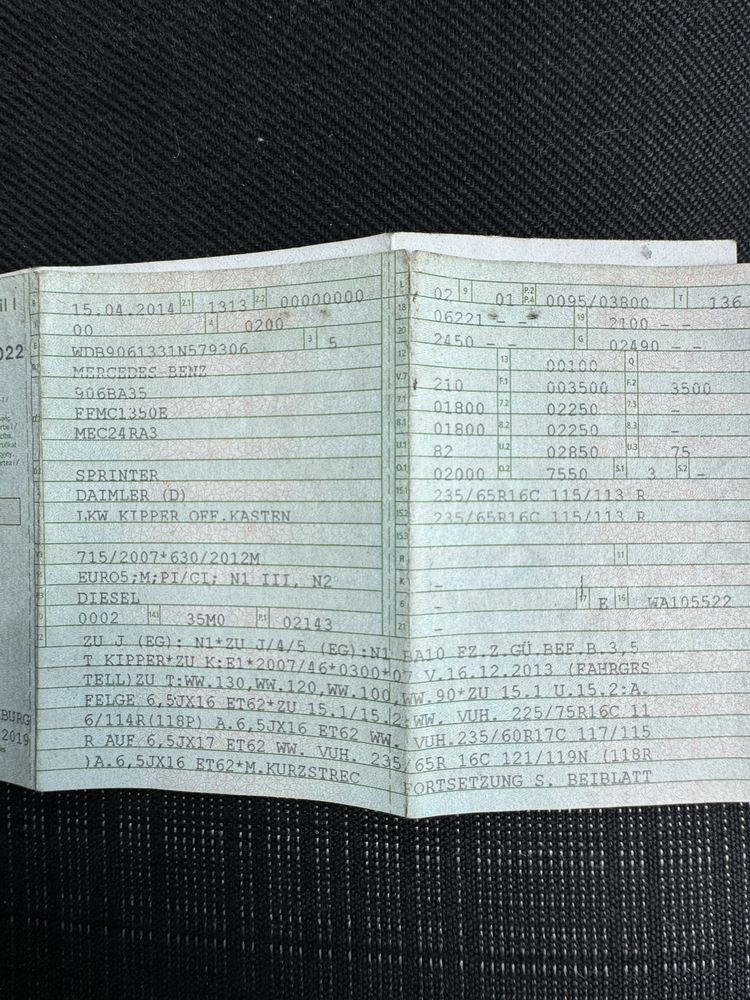 15.04.2014 2.1 1313 2.2 00000000
00 4 0200
WDB9061331N579306 3 5
MERCEDES BENZ
906BA35
FFMC1350E
MEC24RA3
SPRINTER
DAIMLER (D)
LKW KIPPER OFF.KASTEN
715/2007*630/2012M
EURO5;M;PI/CI; N1 III, N2
DIESEL
0002 14.1 35M0 P.1 02143
022
BURG
2019
L 02 9 01 P.2 P.4 0095/03800 T 136
18 06221 - - 19 2100 - -
20 2450 - - G 02490 - -
12 13 00100 Q
V.7 210 F.1 003500 F.2 3500
7.1 01800 7.2 02250 7.3 -
8.1 01800 8.2 02250 8.3 -
U.1 82 U.2 02850 U.3 75
O.1 02000 O.2 7550 S.1 3 S.2 -
15.1 235/65R16C 115/113 R
15.2 235/65R16C 115/113 R
R 11
K -
6 - 17 E 16 WA105522
21 -
ZU J (EG): N1*ZU J/4/5 (EG):N1 BA10 FZ.Z.GÜ.BEF.B.3,5
T KIPPER*ZU K:E1*2007/46*0300*07 V.16.12.2013 (FAHRGES
TELL)ZU T:WW.130,WW.120,WW.100,WW.90*ZU 15.1 U.15.2:A.
FELGE 6,5JX16 ET62*ZU 15.1/15.2:WW. VUH. 225/75R16C 11
6/114R(118P) A.6,5JX16 ET62 WW. VUH.235/60R17C 117/115
R AUF 6,5JX17 ET62 WW. VUH. 235/65R 16C 121/119N (118R
)A.6,5JX16 ET62*M.KURZSTREC FORTSETZUNG S. BEIBLATT